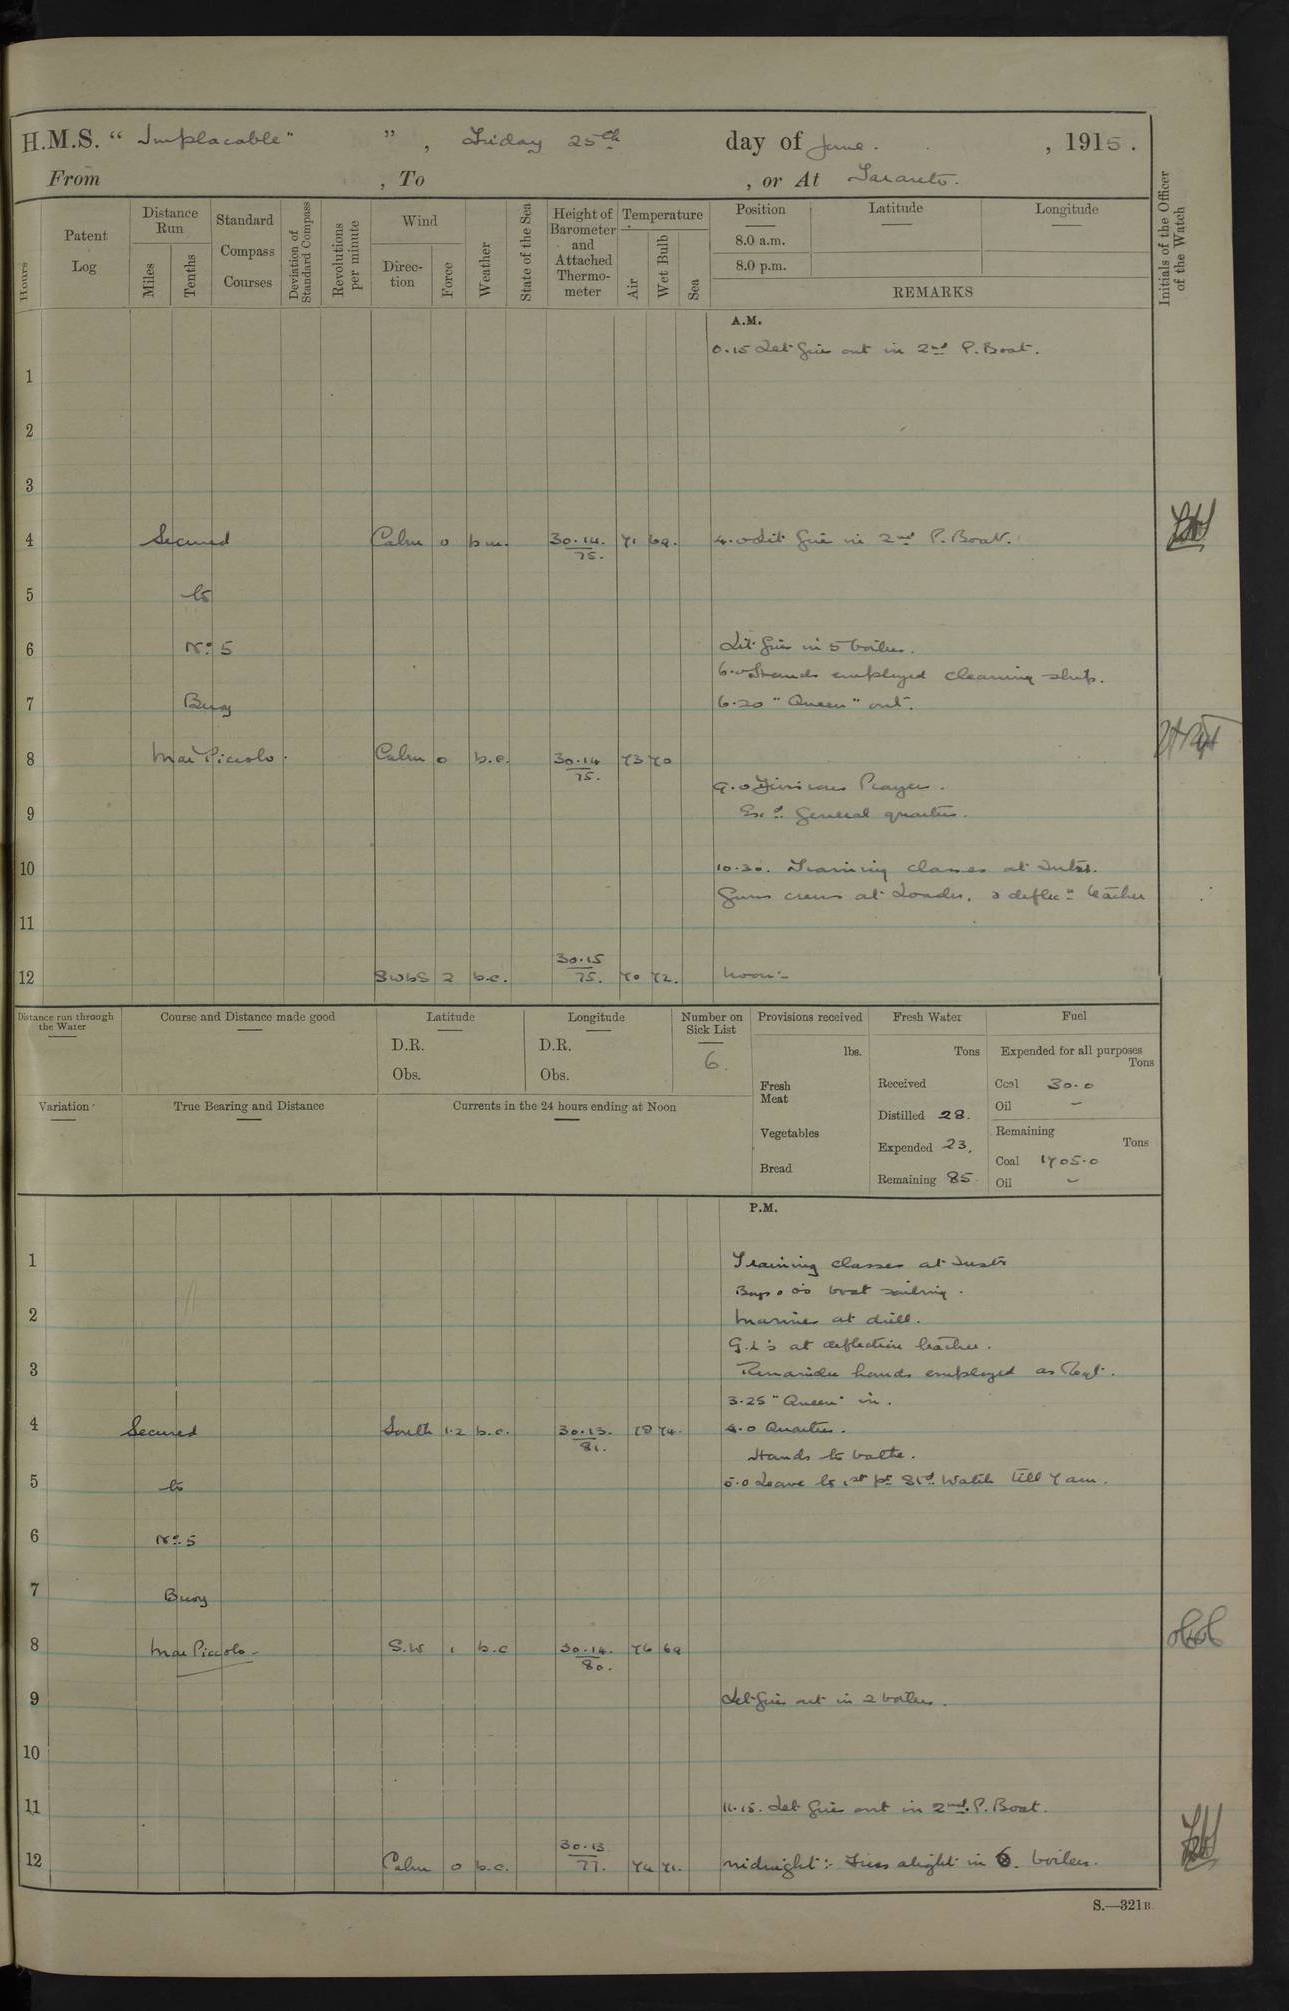 H.M.S. " Implacable " , Friday 25th day of June. , 1915.
From , To , or At Taranto.
Hours
Patent Log
Distance Run
Miles
Tenths
Standard Compass Courses
Deviation of Standard Compass
Revolutions per minute
Wind
Direction
Force
Weather
State of the Sea
Height of Barometer and Attached Thermometer
Temperature
Air
Wet Bulb
Sea
Position
Latitude
Longitude
8.0 a.m.
8.0 p.m.
REMARKS
Initials of the Officer of the Watch
A.M.
0.15 Let fires out in 2nd P. Boat.
1
2
3
4 Secured Calm 0 b.m. 30.14. 75. 71 69. 4.0 Lit fire in 2nd P. Boat.
5 to
6 No. 5 Lit fires in 5 boilers.
6.0 Hands employed cleaning ship.
7 Buoy 6.20 "Queen" out.
8 Mar Piccolo. Calm 0 b.c. 30.14 75. 73 70
9.0 Divisions Prayers.
9 Exd. General quarters.
10 10.30. Training classes at Instn.
Guns crews at Loader, & deflecn teacher
11
12 SWbS 2 b.c. 30.15 75. 70 72. Noon:-
Distance run through the Water
Course and Distance made good
Latitude
Longitude
Number on Sick List
Provisions received
Fresh Water
Fuel
D.R. D.R.
Obs. Obs.
6.
lbs.
Tons
Expended for all purposes
Tons
Fresh Meat
Received
Coal 30.0
Oil -
Variation
True Bearing and Distance
Currents in the 24 hours ending at Noon
Distilled 28.
Vegetables
Remaining
Tons
Expended 23.
Coal 1705.0
Bread
Remaining 85
Oil -
P.M.
1 Training classes at Instn
Boys & ODs boat sailing.
2 Marines at drill.
G.L's at deflection teacher.
3 Remainder hands employed as Reqd.
3.25 "Queen" in.
4 Secured South 1.2 b.c. 30.13. 81. 78 74. 4.0 Quarters.
Hands to bathe.
5 to 5.0 Leave to 1st pt Std. Watch till 7 am.
6 No. 5
7 Buoy
8 Mar Piccolo - S.W 1 b.c 30.14. 80. 76 69
9 Let fires out in 2 boilers.
10
11 11.15. Let fires out in 2nd P. Boat.
12 Calm 0 b.c. 30.13 77. 74 71. Midnight:- Fires alight in 6. boilers.
S.—321B.